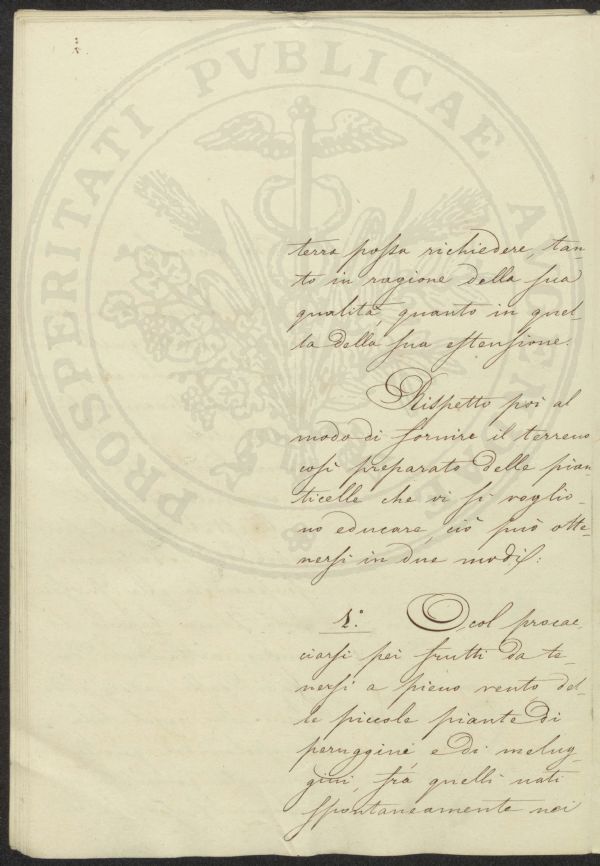 PROSPERITATI PVBLICAE
terra possa richiedere, tan-
to in ragione della sua
qualità, quanto in quel-
la della sua estensione.
Rispetto poi al
modo di fornire il terreno
così preparato delle pian
ticelle che vi si voglio-
no educare, ciò può otte-
nersi in due modi:
1.° O col procac,
ciarsi pei frutti da te-
nersi a pieno vento, del-
le piccole piante di
peruggini e di melug-
gini, frà quelli nati
spontaneamente nei